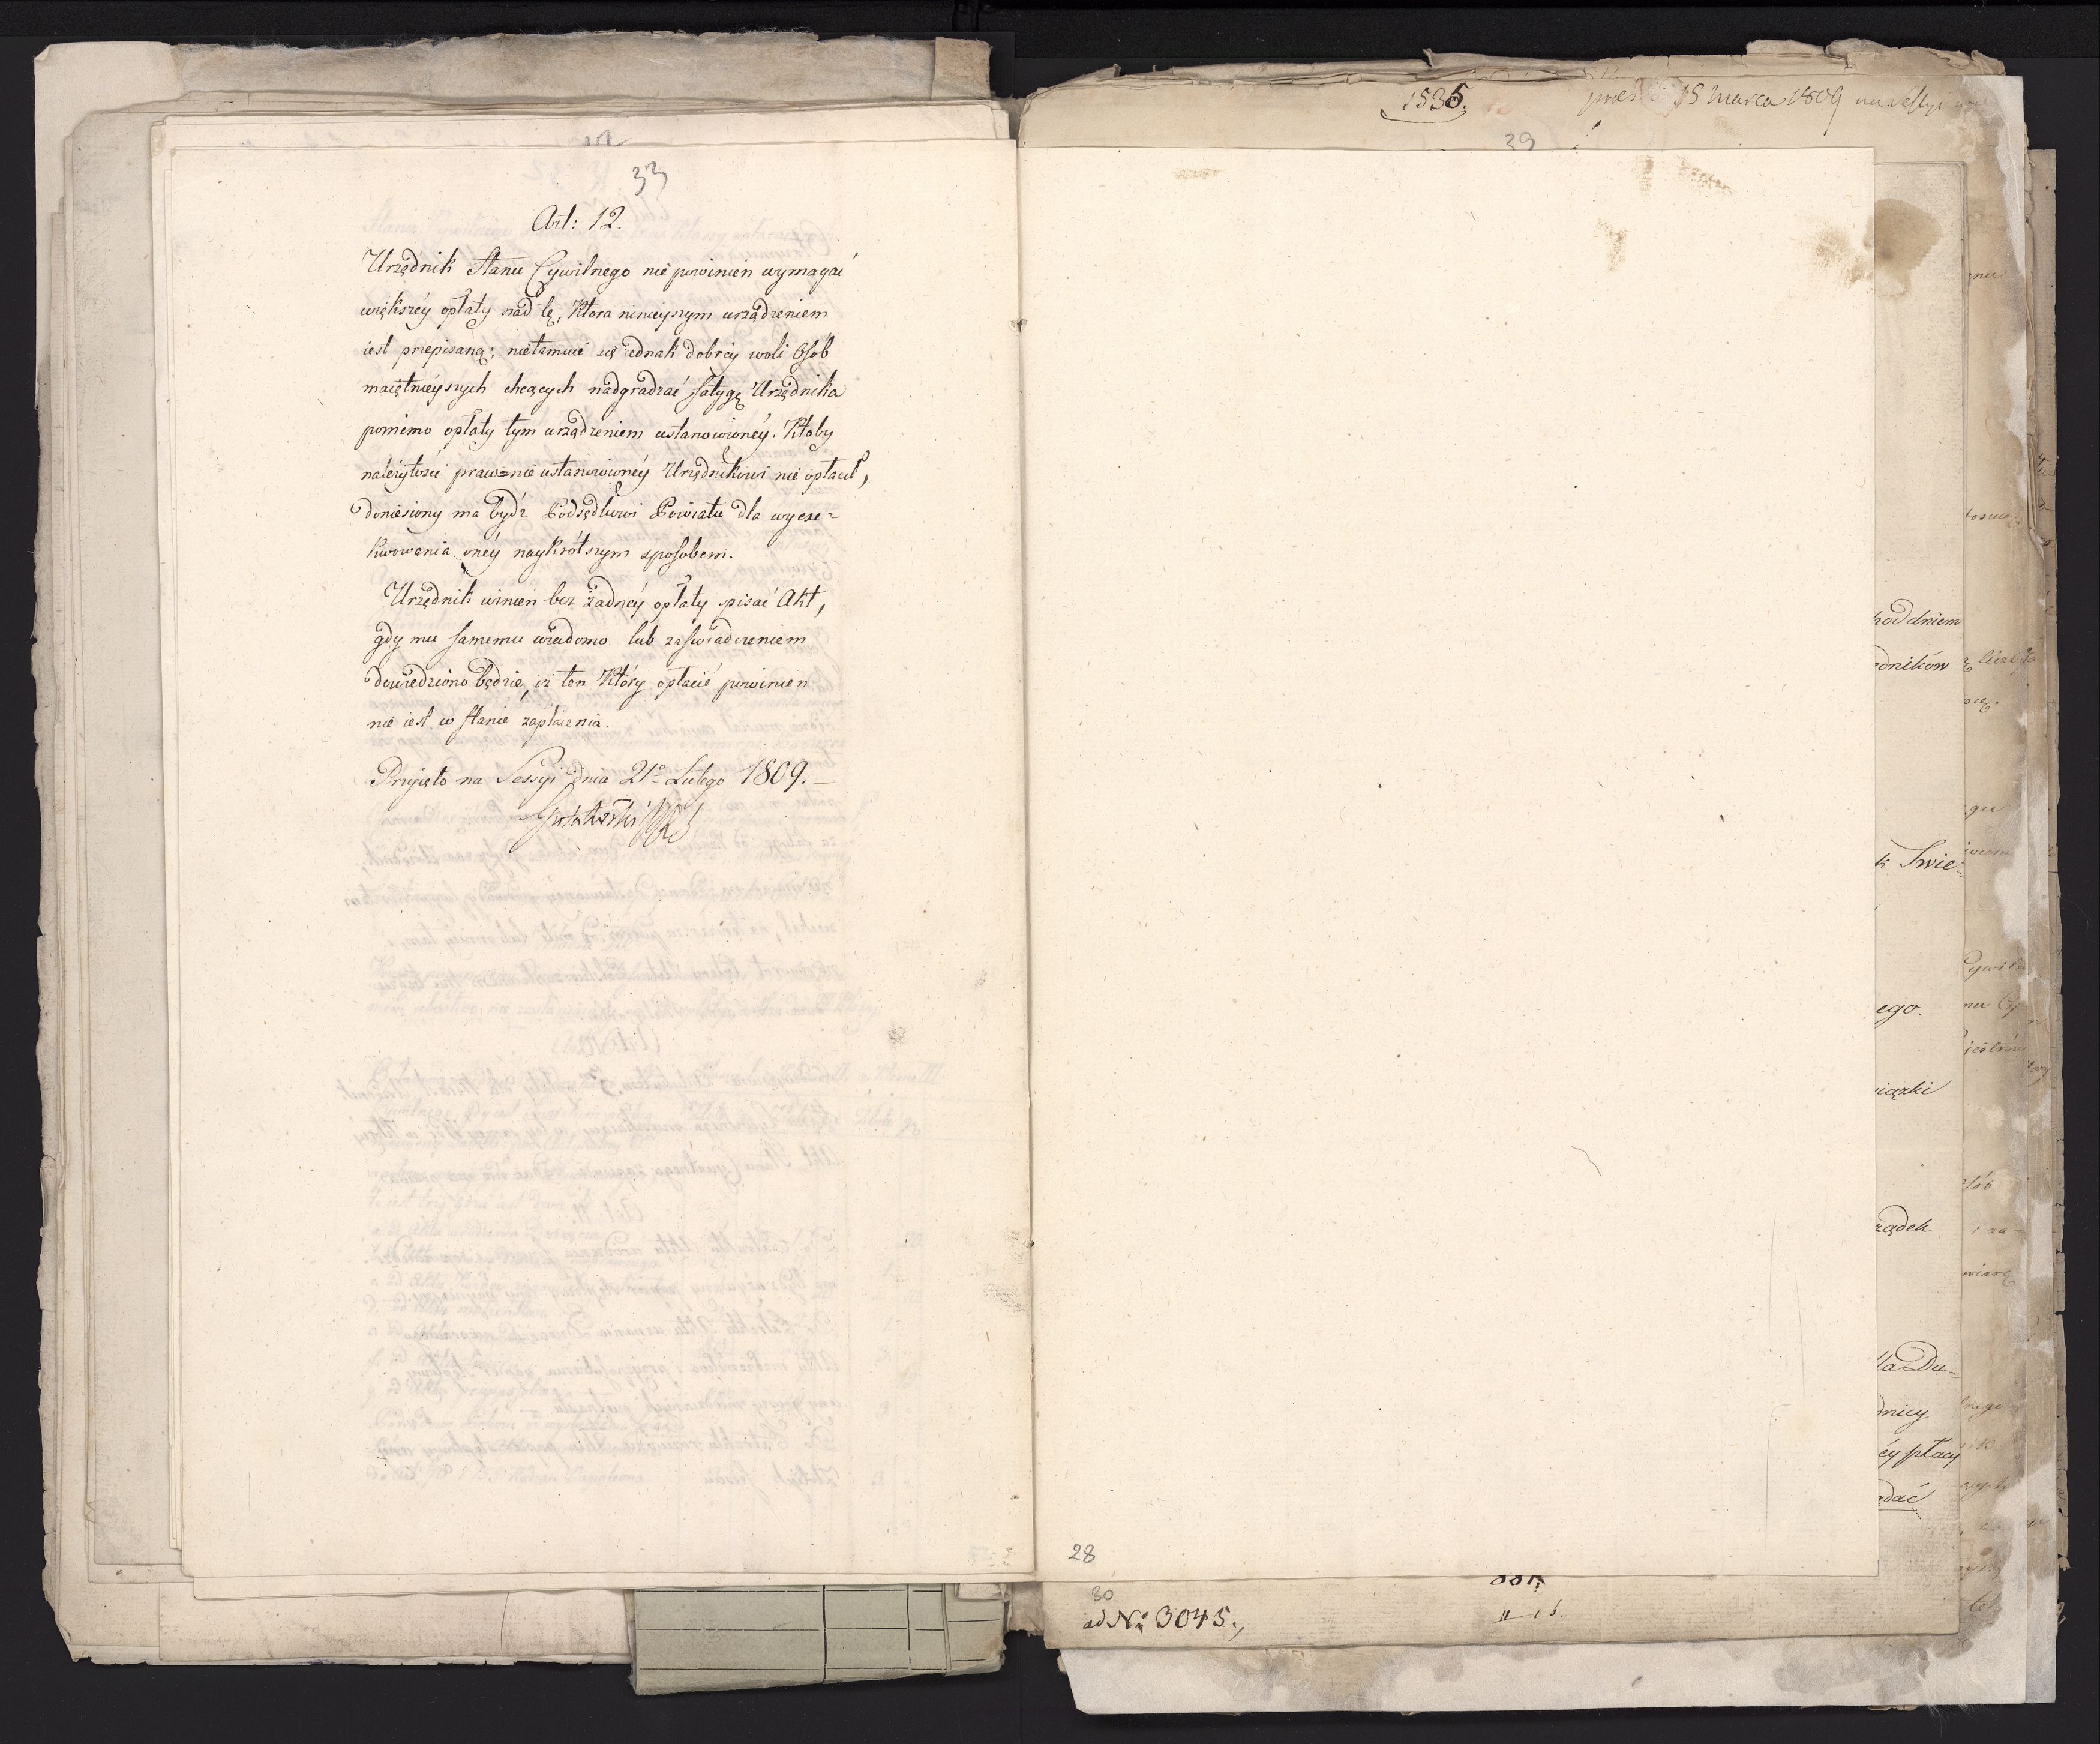 33
Art: 12.
Urzędnik Stanu Cywilnego nie powinien wymagać
większéy opłaty nad tę, Która ninieyszym urządzeniem
iest przepisaną; nietamuie się iednak dobréy woli Osób
maiętnieyszych chcących nadgradzać fatygę Urzędnika
pomimo opłaty tym urządzeniem ustanowionéy. Ktoby
należytości praw=nie ustanowionéy Urzędnikowi nie opłacił,
doniesiony ma bydź Podsędkowi Powiatu dla wyexe=
kwowania onéy naykrótszym sposobem.
Urzędnik winien bez żadnéy opłaty pisać Akt,
gdy mu samemu wiadomo lub zaświadczeniem
dowiedziono będzie, iż ten Który opłacić powinien
nie iest w stanie zapłacenia.
Przyięto na Sessyi dnia 21º Lutego 1809. —
1535.
15 Marca 1809 na Sessyi
39
pod dniem
ędników
k Swie=
ego.
iązki
ządek
dla Du=
dnicy
éy płacy
ądać
28
30
ad No 3045.,